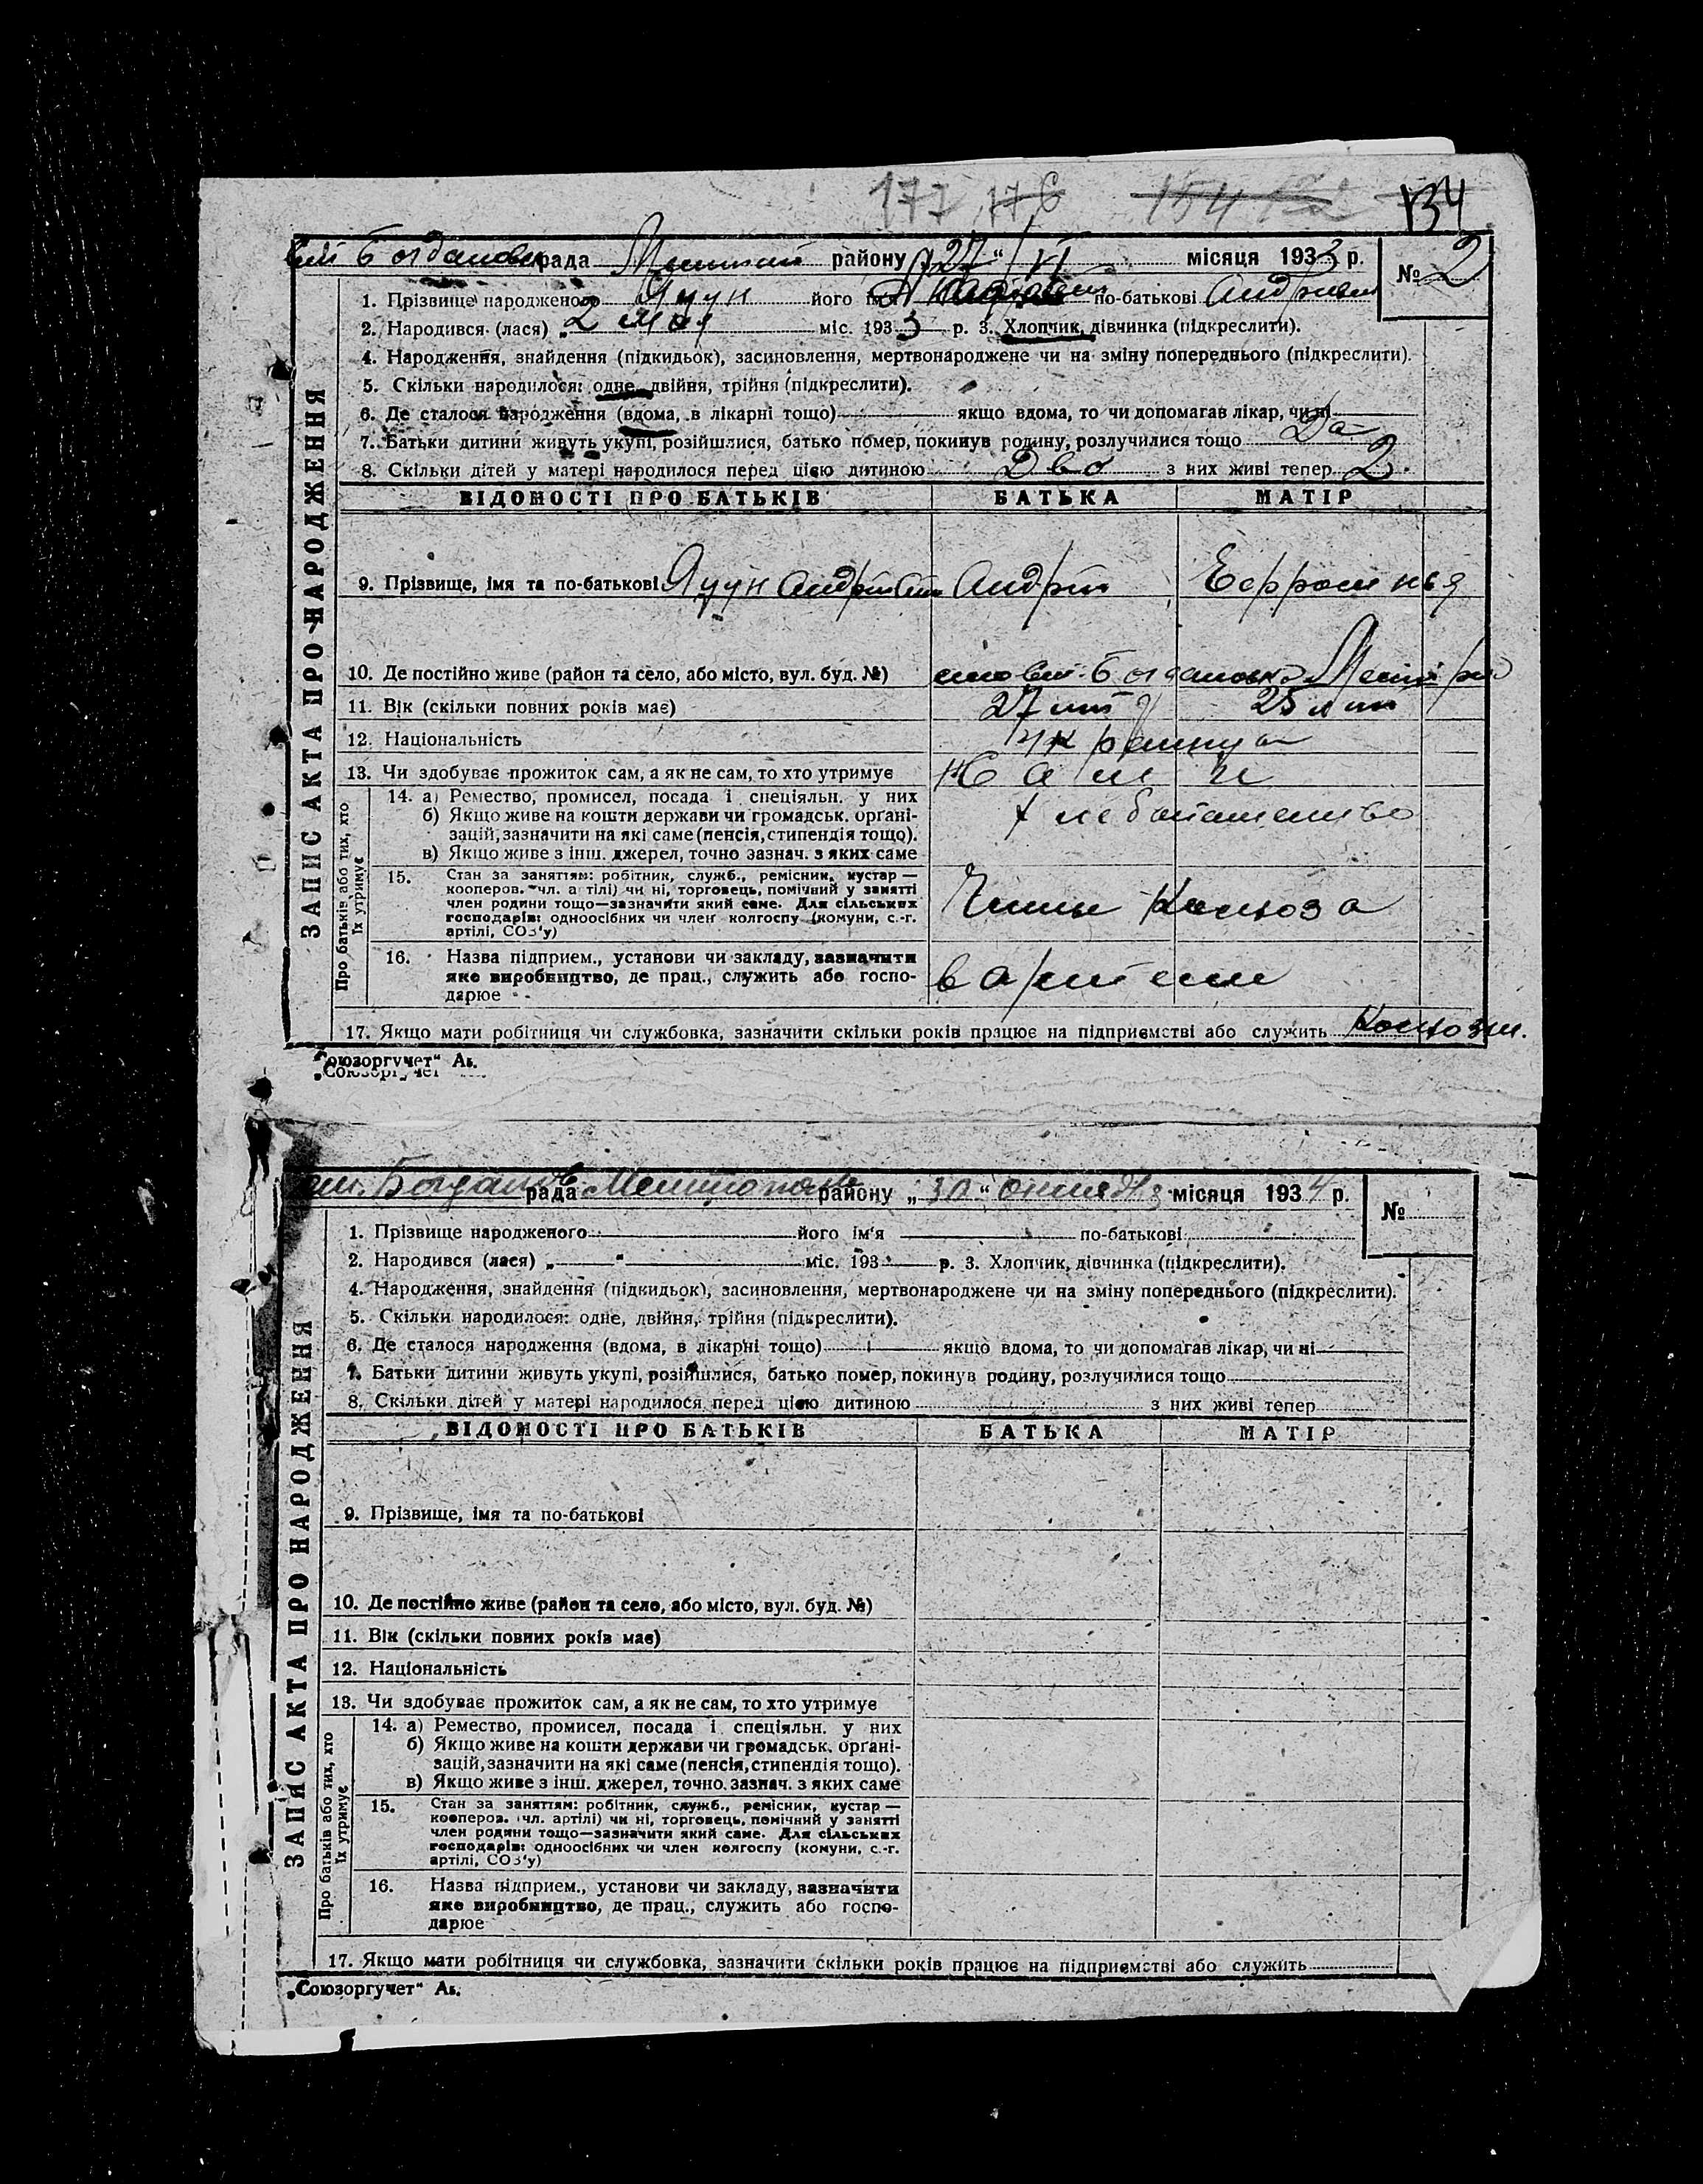 177 176 154 172 134
рада району „27“ VI місяця 1933 р. № 2
1. Прізвище народженого Яцун його ім'я по-батькові
2. Народився (лася) „2 мая міс. 1933 р. 3. Хлопчик, дівчинка (підкреслити).
4. Народження, знайдення (підкидьок), засиновлення, мертвонароджене чи на зміну попереднього (підкреслити).
5. Скільки народилося: одне, двійня, трійня (підкреслити).
6. Де сталося народження (вдома, в лікарні тощо) якщо вдома, то чи допомагав лікар, чи ні
7. Батьки дитини живуть укупі, розійшлися, батько помер, покинув родину, розлучилися тощо Да
8. Скільки дітей у матері народилося перед цією дитиною Дво з них живі тепер 2
ВІДОМОСТІ ПРО БАТЬКІВ БАТЬКА МАТІР
ЗАПИС АКТА ПРО НАРОДЖЕННЯ
9. Прізвище, імя та по-батькові Яцун Андрій
10. Де постійно живе (район та село, або місто, вул. буд. №)
11. Вік (скільки повних років має) 27 25
12. Національність
13. Чи здобуває прожиток сам, а як не сам, то хто утримує
Про батьків або тих, хто
їх утримує
14. а) Ремество, промисел, посада і спеціяльн. у них
б) Якщо живе на кошти держави чи громадськ. орґані-
зацій, зазначити на які саме (пенсія, стипендія тощо).
в) Якщо живе з інш. джерел, точно зазнач. з яких саме
15. Стан за заняттям: робітник, служб., ремісник, кустар —
кооперов. чл. артілі) чи ні, торговець, помічний у занятті
член родини тощо—зазначити який саме. Для сільських
господарів: одноосібних чи член колгоспу (комуни, с.-г.
артілі, СОЗ'у)
16. Назва підприєм., установи чи закладу, зазначити
яке виробництво, де прац., служить або госпо-
дарює
17. Якщо мати робітниця чи службовка, зазначити скільки років працює на підприємстві або служить
„Союзоргучет“ Аь.
рада району „30“ місяця 1934 р. №
1. Прізвище народженого його ім'я по-батькові
2. Народився (лася) „ “ міс. 193 р. 3. Хлопчик, дівчинка (підкреслити).
4. Народження, знайдення (підкидьок), засиновлення, мертвонароджене чи на зміну попереднього (підкреслити).
5. Скільки народилося: одне, двійня, трійня (підкреслити).
6. Де сталося народження (вдома, в лікарні тощо) якщо вдома, то чи допомагав лікар, чи ні
7. Батьки дитини живуть укупі, розійшлися, батько помер, покинув родину, розлучилися тощо
8. Скільки дітей у матері народилося перед цією дитиною з них живі тепер
ВІДОМОСТІ ПРО БАТЬКІВ БАТЬКА МАТІР
ЗАПИС АКТА ПРО НАРОДЖЕННЯ
9. Прізвище, імя та по-батькові
10. Де постійно живе (район та село, або місто, вул. буд. №)
11. Вік (скільки повних років має)
12. Національність
13. Чи здобуває прожиток сам, а як не сам, то хто утримує
Про батьків або тих, хто
їх утримує
14. а) Ремество, промисел, посада і спеціяльн. у них
б) Якщо живе на кошти держави чи громадськ. орґані-
зацій, зазначити на які саме (пенсія, стипендія тощо).
в) Якщо живе з інш. джерел, точно зазнач. з яких саме
15. Стан за заняттям: робітник, служб., ремісник, кустар —
кооперов. чл. артілі) чи ні, торговець, помічний у занятті
член родини тощо—зазначити який саме. Для сільських
господарів: одноосібних чи член колгоспу (комуни, с.-г.
артілі, СОЗ'у)
16. Назва підприєм., установи чи закладу, зазначити
яке виробництво, де прац., служить або госпо-
дарює
17. Якщо мати робітниця чи службовка, зазначити скільки років працює на підприємстві або служить
„Союзоргучет“ Аь.